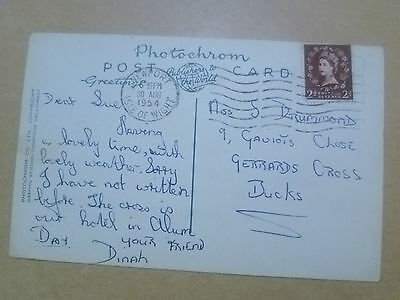 Photochrom
POST CARD
Publishers to the World
NEWPORT
6 PM
30 AUG
1954
I. OF WIGHT
Greetings
Dear Sue
Having
a lovely time, with
lovely weather. Sorry
I have not written
before. The cross is
our hotel in Alum
Bay. YOUR FRIEND
Dinah
Miss S DRUMMOND
9, GAVIOTS CLOSE
GERRARDS CROSS
BUCKS
2D 2D
PHOTOCHROM CO. LTD.
COPYRIGHT